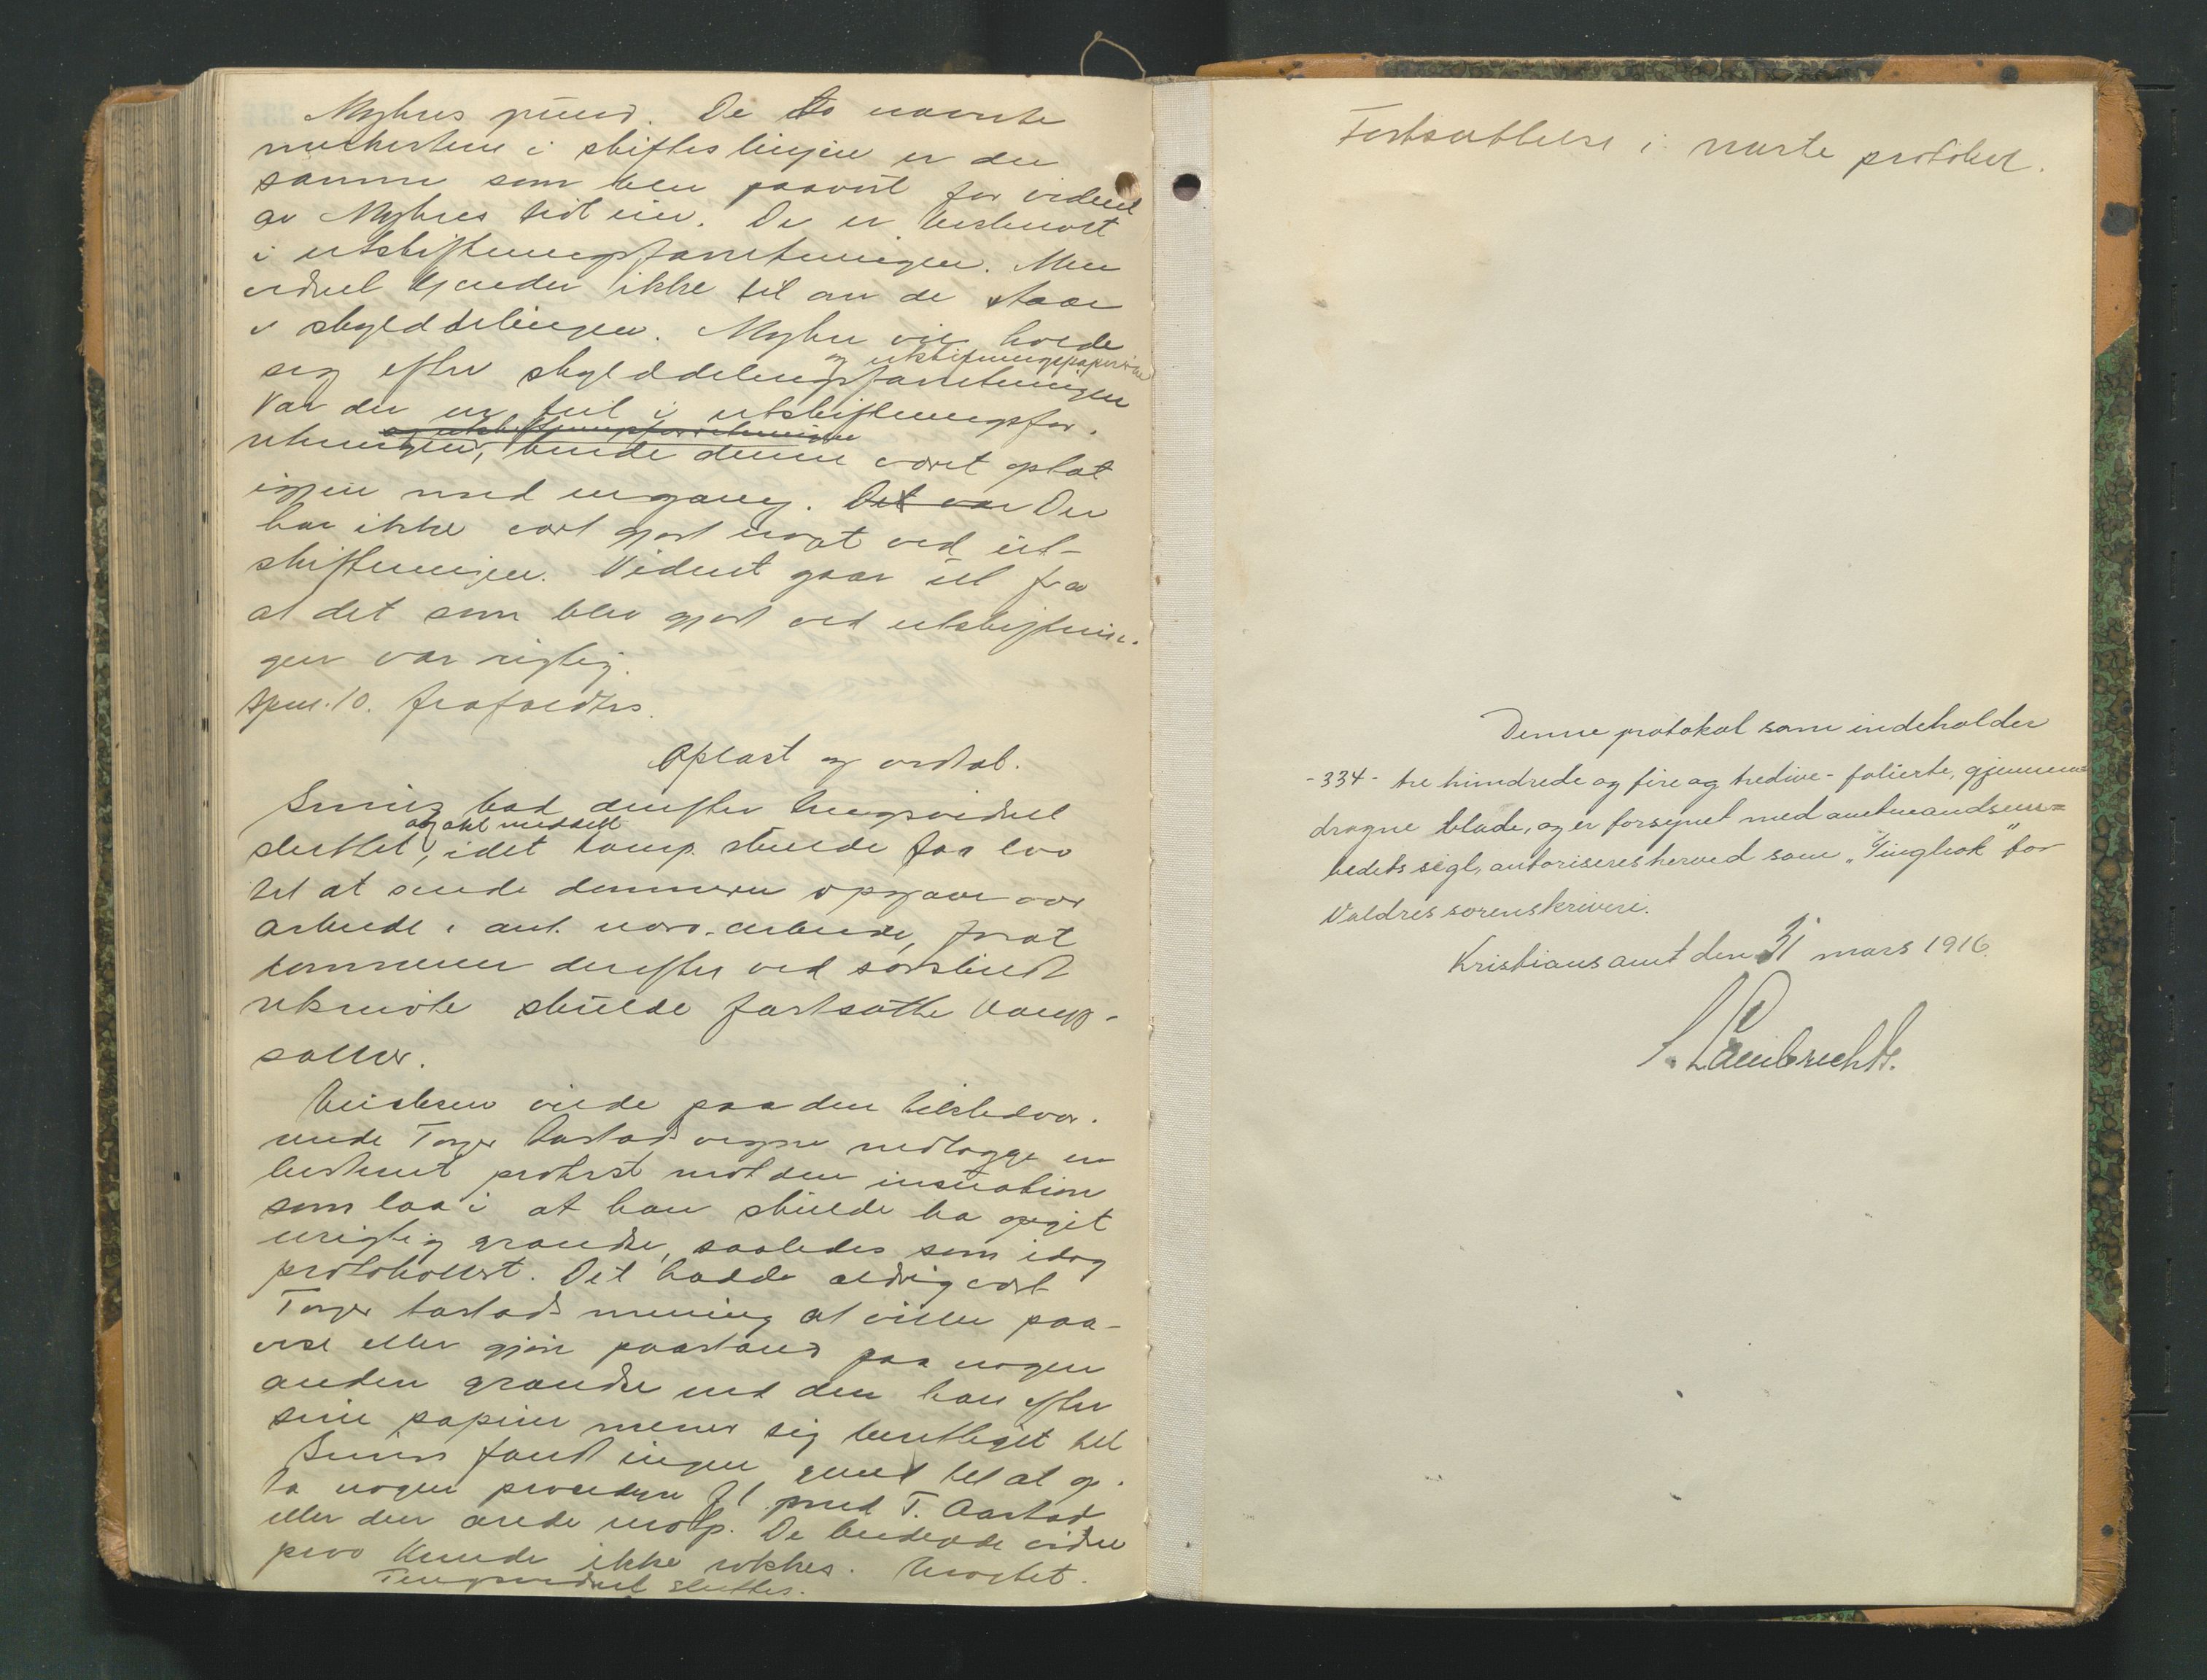 Myhres grund. De to nævnte
merkestene i skifteslinjen er de
samme som blev paavist for vidnet
av Myhres tidl. eier. De er beskrevet
i utskiftningsforretningen. Men
vidnet kjender ikke til om de staar
i skylddelingen. Myhre vil holde
og utskiftningspapirene
sig efter skylddelingsforretningen
Var der en feil i utskiftningsfor-
og utskiftningsforretningen
retningen, burde denne været oplat
igjen med engang. Det var Der
har ikke vært gjort noget ved ut-
skiftningen. Vidnet gaar ut fra
at det som blev gjort ved utskiftnin-
gen var rigtig.
Spm. 10. frafaldtes.
Oplæst og vedtat.
bad derefter tingsvidnet
og akt meddelt
sluttet, idet komp. skulde faa lov
til at sende dommeren opgave over
arbeide i anl. nærv. arbeide, forat
dommeren derefter ved særskilt
retsmøte skulde fastsætte
salær.
vilde paa den tilstedevæ-
rende Torger Aastads vegne nedlægge en
bestemt protest mot den insinuation
som laa i at han skulde ha opgit
urigtig grændse, saaledes som idag
protokollert. Det hadde aldrig vært
Torger Aastads mening at ville paa-
vise eller gjøre paastand paa nogen
anden grændse end den han efter
sine papirer mener sig berettiget til
fandt ingen grund til at op-
ta nogen procedyre f. t. med T. Aastad
eller den andre motp. De beedigede vidne-
prov kunde ikke rokkes. Vedtat.
Tingsvidnet sluttes.
Fortsættelse i næste protokol.
Denne protokol som indeholder
-334- tre hundrede og fire og tredive - folierte, gjennem=
dragne blade, og er forsynet med amtmandsem=
bedets segl, autoriseres herved som "Tingbok" for
Valdres sorenskriveri.
Kristians amt den 31 mars 1916.
Lambrechts.